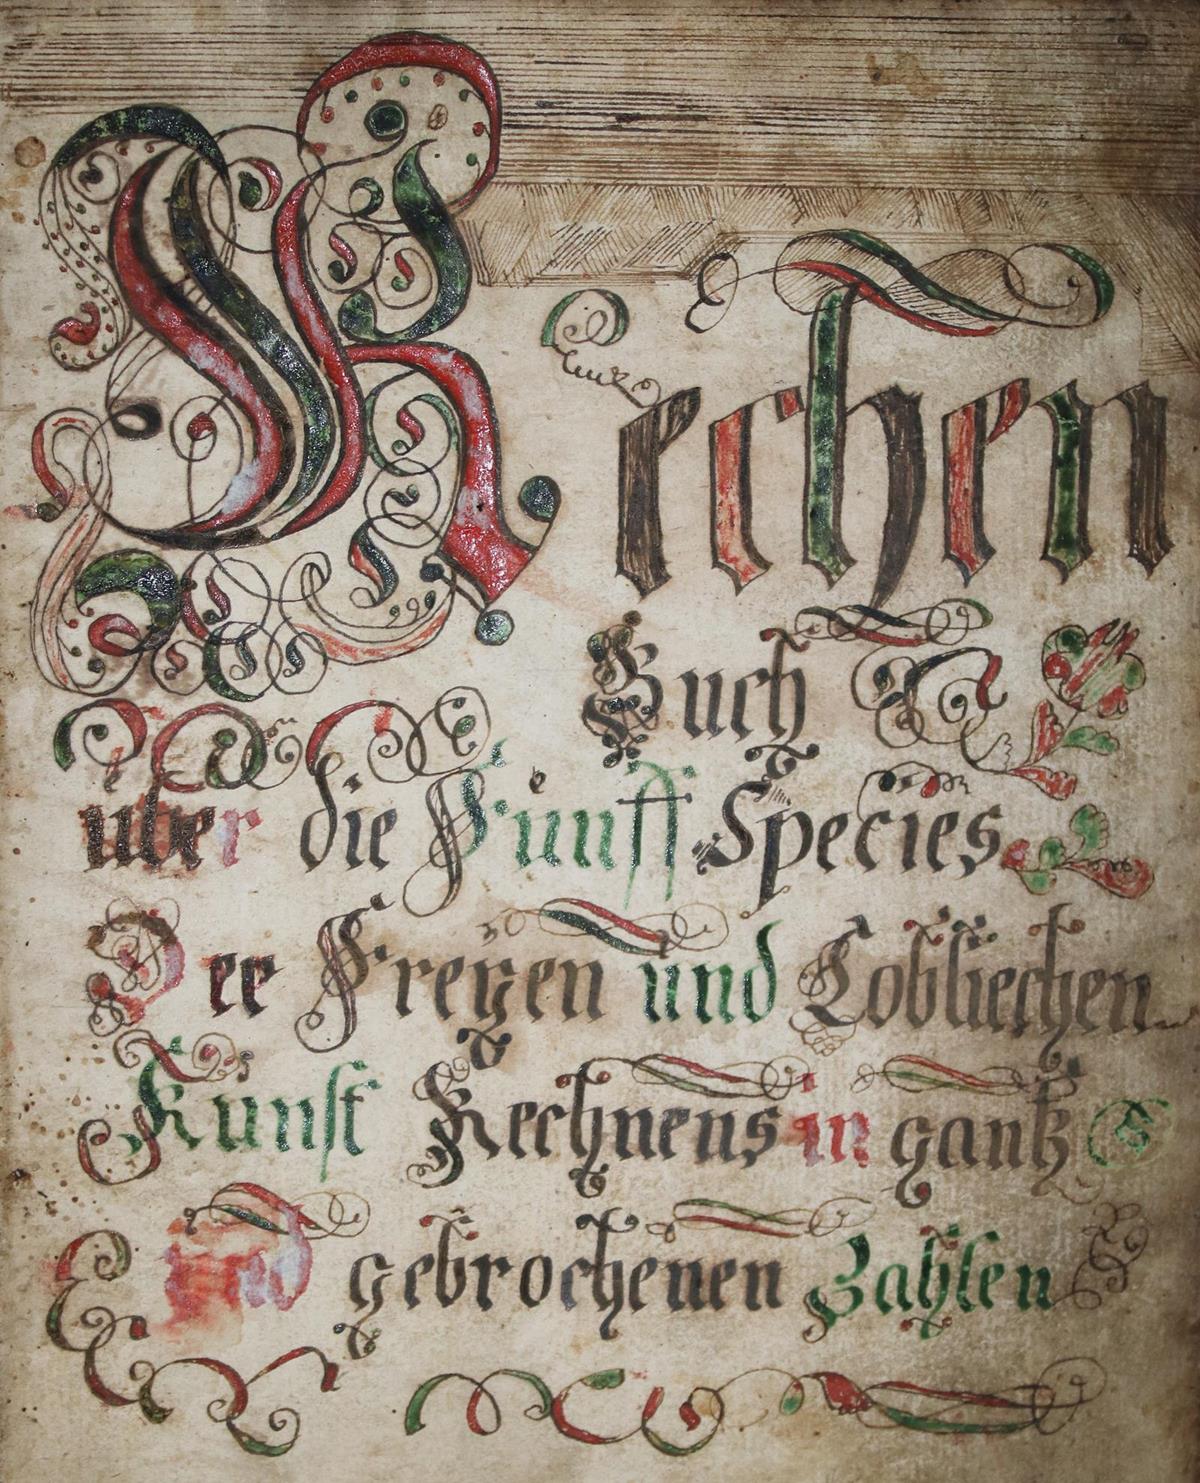 Rechen
Buch
über die Fünff Species
Der Freyen und Lobliechen
Kunst Rechnens in gantz
und gebrochenen Zahlen